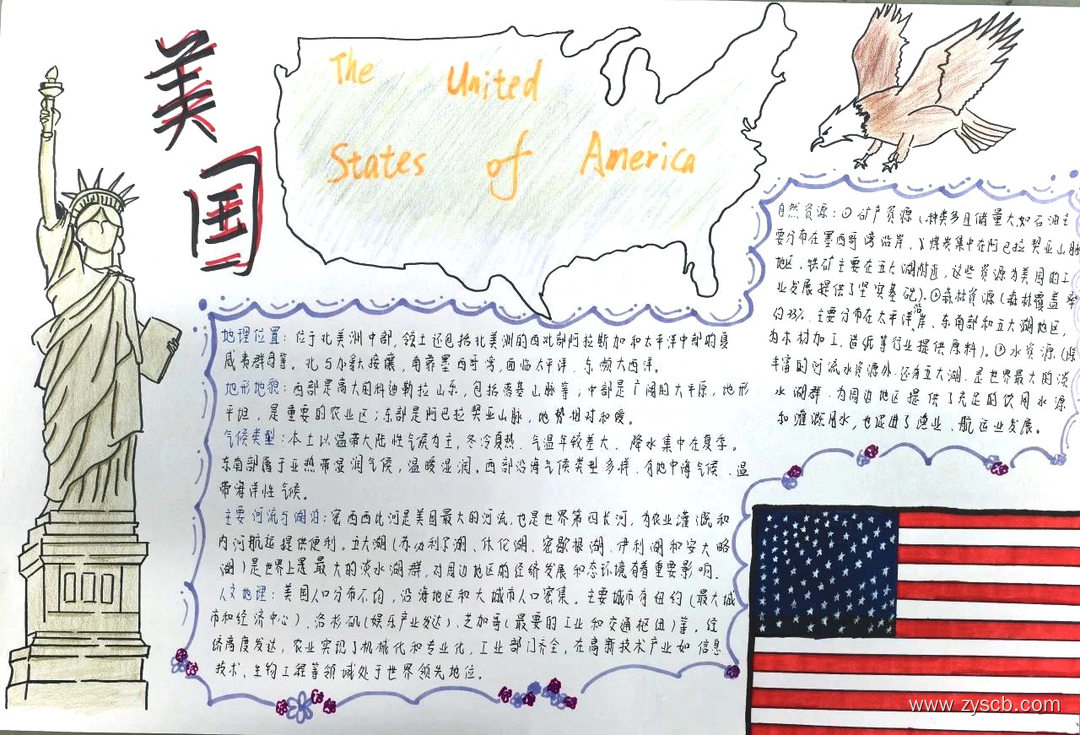 美国
The United
States of America
自然资源：①矿产资源（种类多且储量大，如石油主
要分布在墨西哥湾沿岸，煤炭集中在阿巴拉契亚山脉
地区，铁矿主要在五大湖附近，这些资源为美国的工
业发展提供了坚实基础）。②森林资源（森林覆盖率
约33%，主要分布在太平洋沿岸、东南部和五大湖地区，
为木材加工、造纸等行业提供原料）。③水资源（除
丰富的河流水资源外，还有五大湖，是世界最大的淡
水湖群，为周边地区提供了充足的饮用水源
和灌溉用水，也促进了渔业、航运业发展。
地理位置：位于北美洲中部，领土还包括北美洲的西北部阿拉斯加和太平洋中部的夏
威夷群岛等。北与加拿大接壤，南靠墨西哥湾，西临太平洋，东频大西洋。
地形地貌：西部是高大的科迪勒拉山系，包括落基山脉等；中部是广阔的大平原，地形
平坦，是重要的农业区；东部是阿巴拉契亚山脉，地势相对和缓。
气候类型：本土以温带大陆性气候为主，冬冷夏热，气温年较差大，降水集中在夏季。
东南部属于亚热带湿润气候，温暖湿润。西部沿海气候类型多样，有地中海气候、温
带海洋性气候。
主要河流与湖泊：密西西比河是美国最大的河流，也是世界第四长河，为农业灌溉和
内河航运提供便利。五大湖（苏必利尔湖、休伦湖、密歇根湖、伊利湖和安大略
湖）是世界上最大的淡水湖群，对周边地区的经济发展和态环境有着重要影响。
人文地理：美国人口分布不均，沿海地区和大城市人口密集。主要城市有纽约（最大城
市和经济中心），洛杉矶（娱乐产业发达），芝加哥（重要的工业和交通枢纽）等，经
济高度发达，农业实现了机械化和专业化，工业部门齐全，在高新技术产业如信息
技术、生物工程等领域处于世界领先地位。
www.zyscb.com